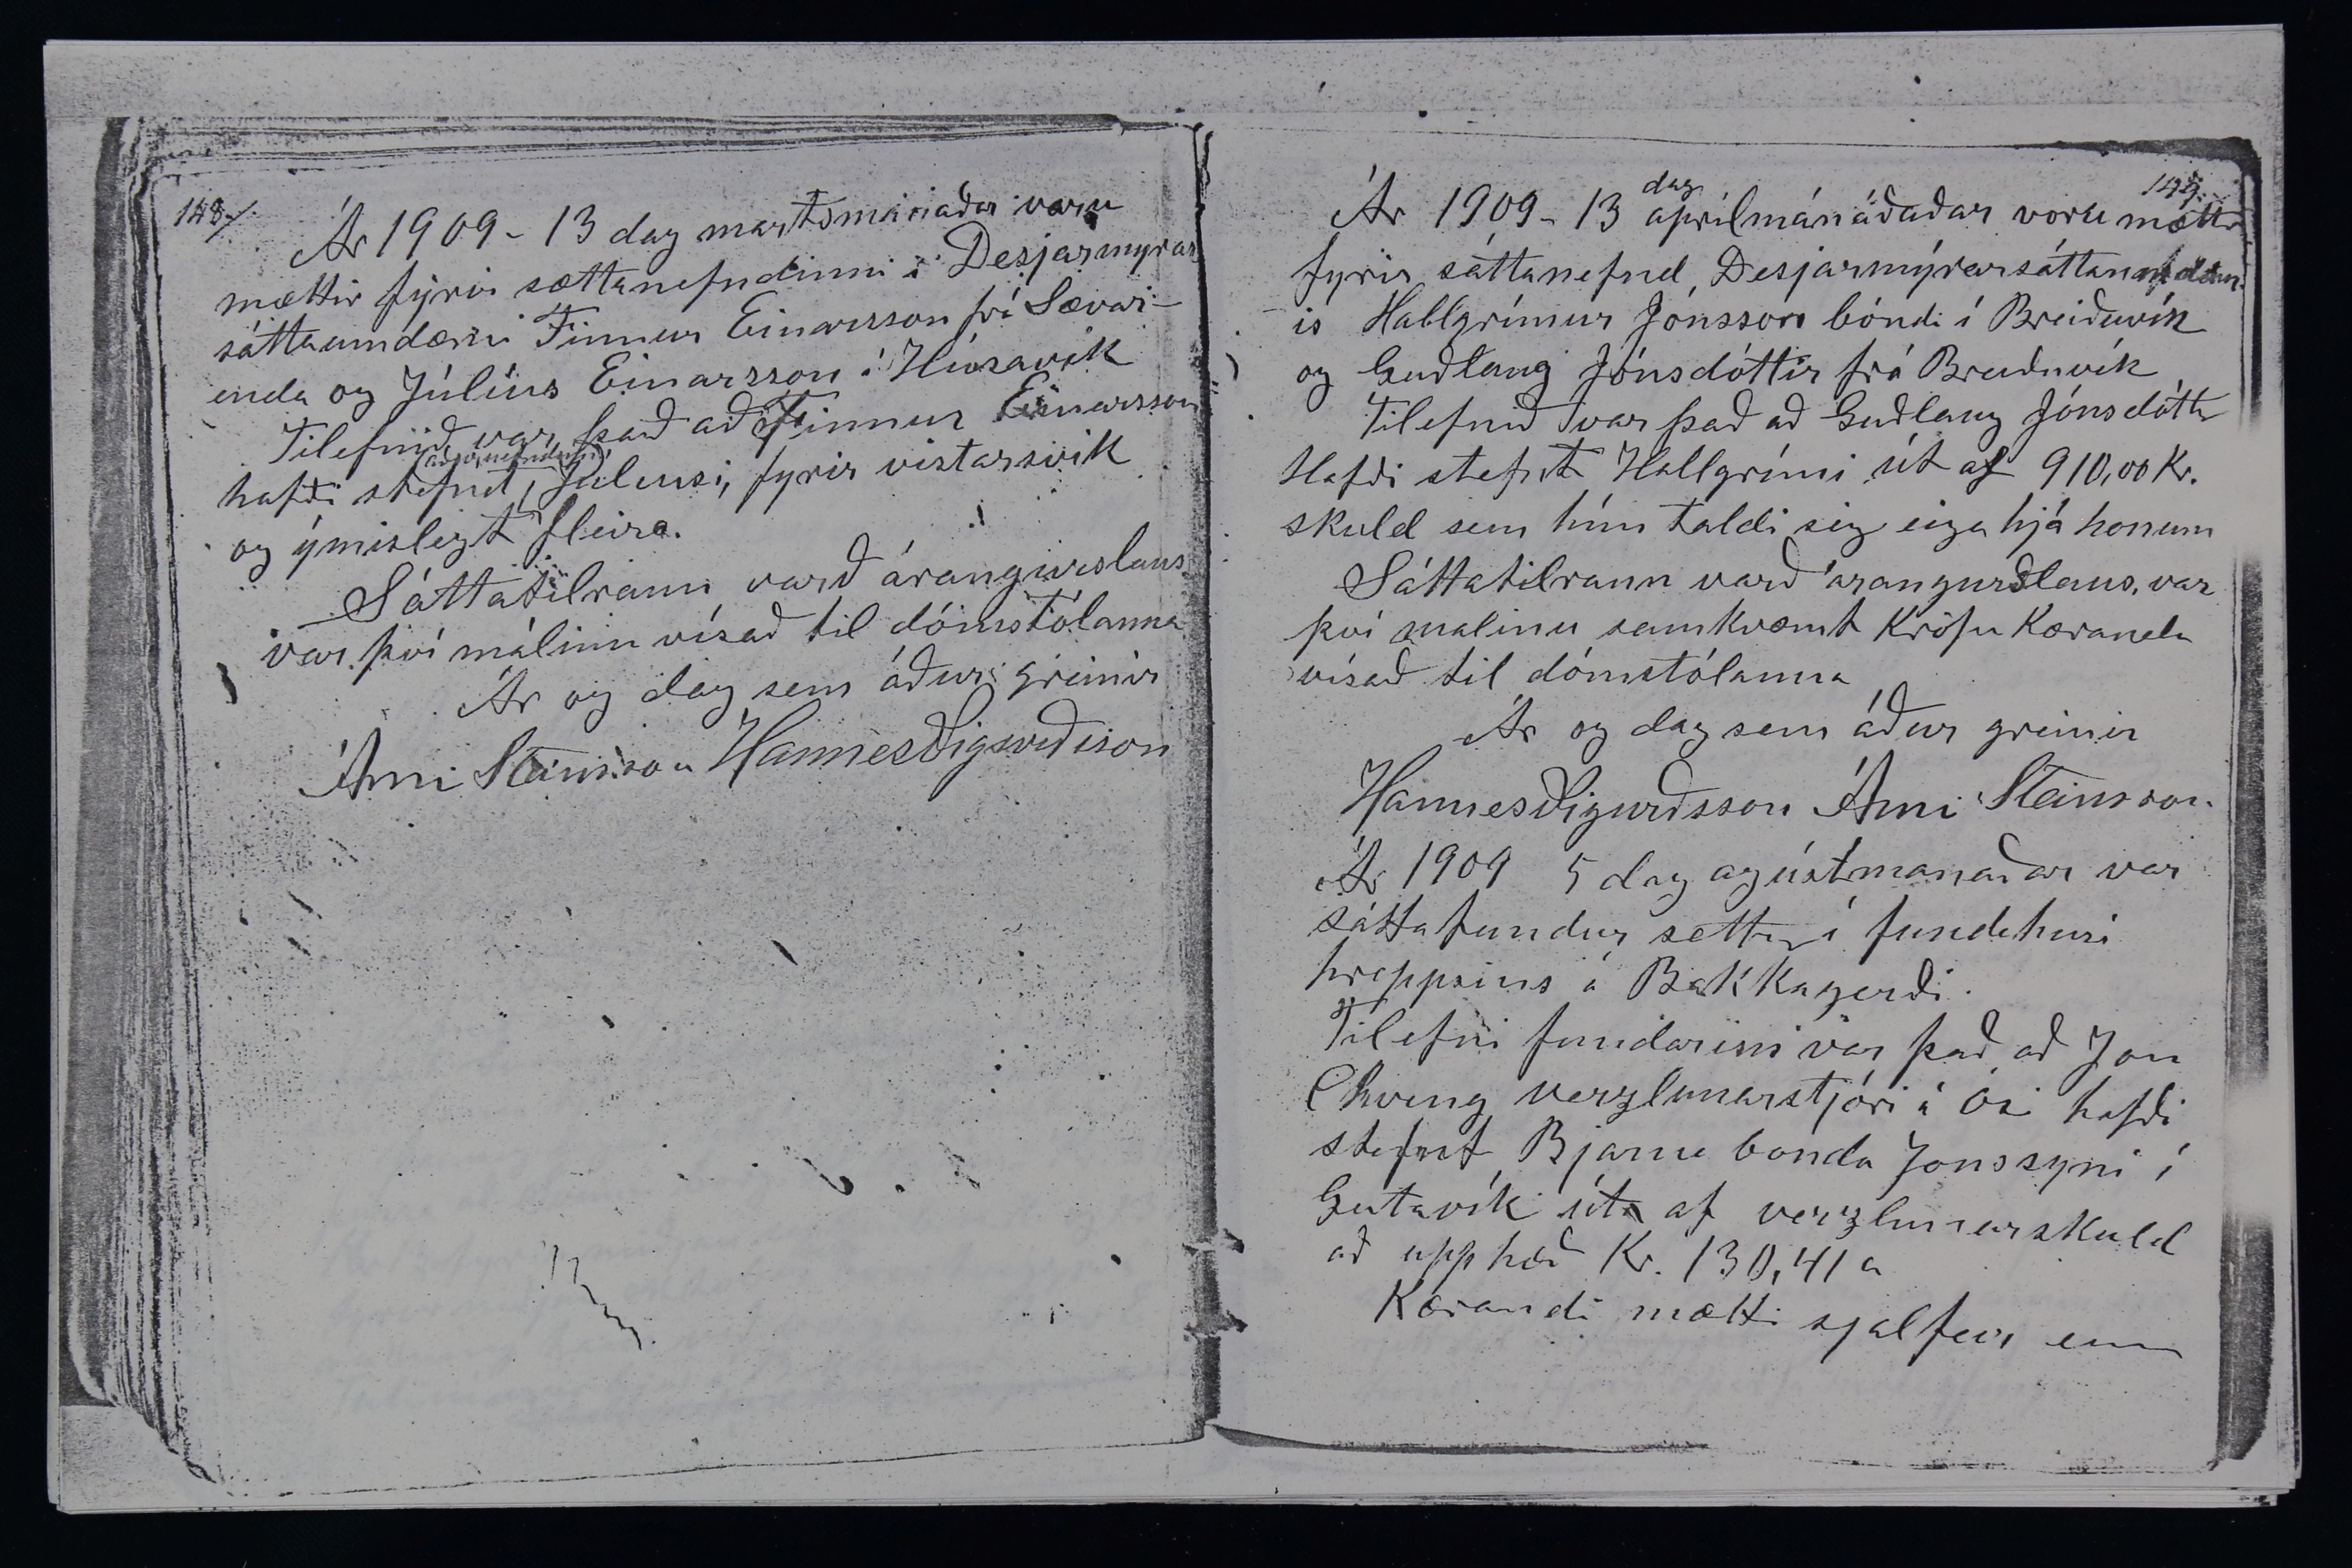 148./.
Ár 1909 - 13 dag martsmánaðar voru
mættir fyrir sættanefndinni í Desjarmyrar
sáttaumdæmi Finnur Einarsson frá Sævar-
enda og Júlíus Einarsson í Húsavík
Tilefnið var það að Finnur Einarsson
hafði stefnt, Júlíusi, fyrir vistarsvik
og ýmislegt fleira.
Sáttatilraun varð árangurslaus
var því málinu vísað til dómstólanna
Ár og dag sem áður greinir
Árni Steinsson Hannes Sigurðsson
149.
Ár 1909 - 13 dag aprílmánáðaðar voru mættir
fyrir sáttanefnd, Desjarmýrarsáttaumdæm
is Hallgrímur Jónsson bóndi í Breiðuvík
og Guðlaug Jónsdóttir frá Breiðuvík
Tilefnið var það að Guðlaug Jónsdóttir
Hafði stefnt Hallgrími út af 910,00 Kr.
skuld sem hún taldi sig eiga hjá honum
Sáttatilraun varð árangurslaus, var
því malinu samkvæmt Kröfu Kæranda
vísað til dómstólanna
Ár og dag sem áður greinir
Hannes Sigurðsson Árni Steinsson.
Ár 1909 5 dag agústmanaðar var
sáttafundur settur í fundehusi
hreppsins á Bakkagerði.
Tilefni fundarins var það að Jon
verzlunarstjóri á hafði
stefnt Bjarna bonda Jonssyni í
Gutavík út af verzlunarskuld
að upphæð Kr. 130,41 a
Kærandi mætti sjalfur enn